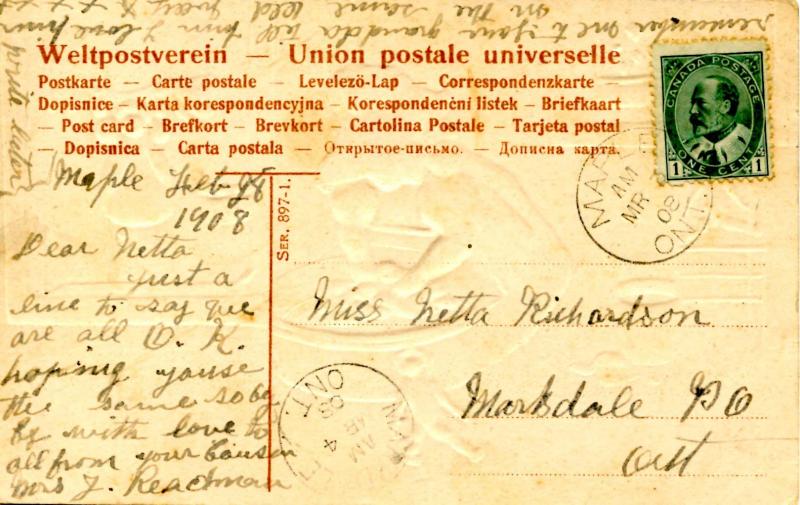 remember me to your grandda tell him I love him
in the same old way x x x
write later
Weltpostverein — Union postale universelle
Postkarte — Carte postale — Levelezö-Lap — Correspondenzkarte —
Dopisnice — Karta korespondencyjna — Korespondenční listek — Briefkaart
— Post card — Brefkort — Brevkort — Cartolina Postale — Tarjeta postal
— Dopisnica — Carta postala — Открытое-письмо. — Дописна карта.
CANADA POSTAGE
1 ONE CENT 1
MAPLE
AM
MR
08
ONT.
Maple Feb 28
1908
Dear Netta
just a
line to say we
are all O. K.
hoping youse
the same so by
by with love to
all from your Cousin
Mrs J. Readman
SER. 897-1.
Miss Netta Richardson
Markdale PO
Ont
AM
MR 4
08
ONT